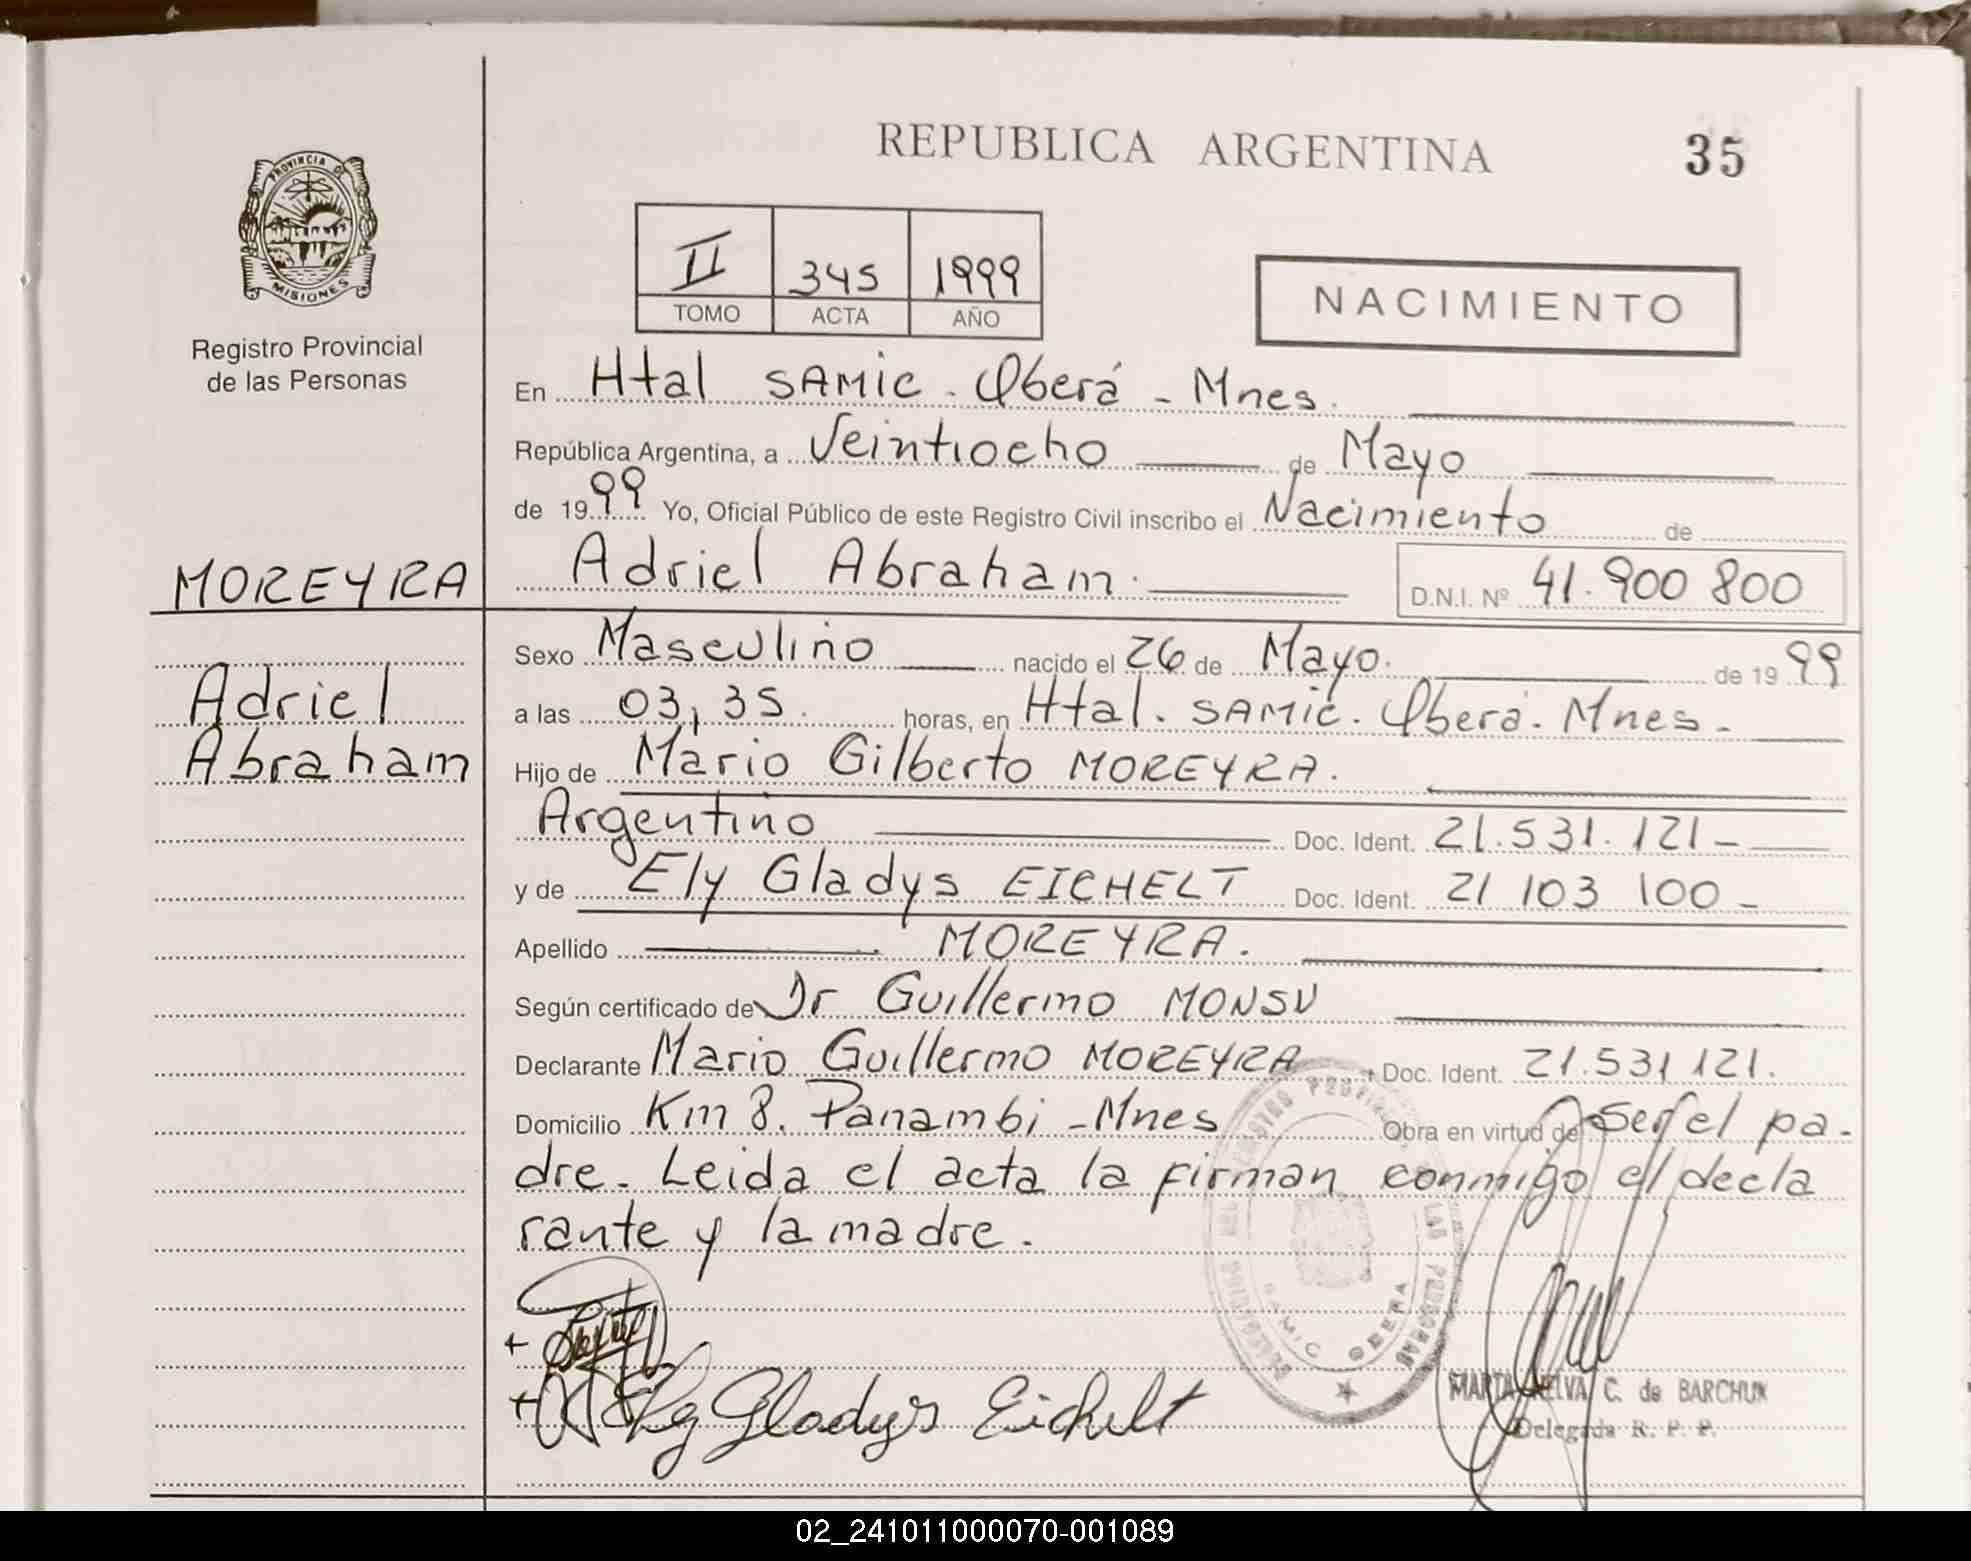 REPUBLICA ARGENTINA
35
PROVINCIA DE
MISIONES
Registro Provincial
de las Personas
II 345 1999
TOMO ACTA AÑO
NACIMIENTO
En Htal SAMIC. Oberá - Mnes.
República Argentina, a Veintiocho de Mayo
de 1999 Yo, Oficial Público de este Registro Civil inscribo el Nacimiento de
MOREYRA
Adriel Abraham. D.N.I. Nº 41.900 800
Adriel
Abraham
Sexo Masculino nacido el 26 de Mayo. de 1999
a las 03,35. horas, en Htal. SAMIC. Oberá. Mnes.
Hijo de Mario Gilberto MOREYRA.
Argentino Doc. Ident. 21.531.121-
y de Ely Gladys EICHELT Doc. Ident. 21 103 100-
Apellido MOREYRA.
Según certificado de Dr Guillermo MONSU
Declarante Mario Guillermo MOREYRA Doc. Ident. 21.531 121.
Domicilio Km 8. Panambi - Mnes Obra en virtud de ser el pa-
dre. Leida el acta la firman conmigo el decla
rante y la madre.
SAMIC OBERA
Ely Gladys Eichelt
MARTA NELVA C. de BARCHUK
Delegada R. P. P.
02_241011000070-001089